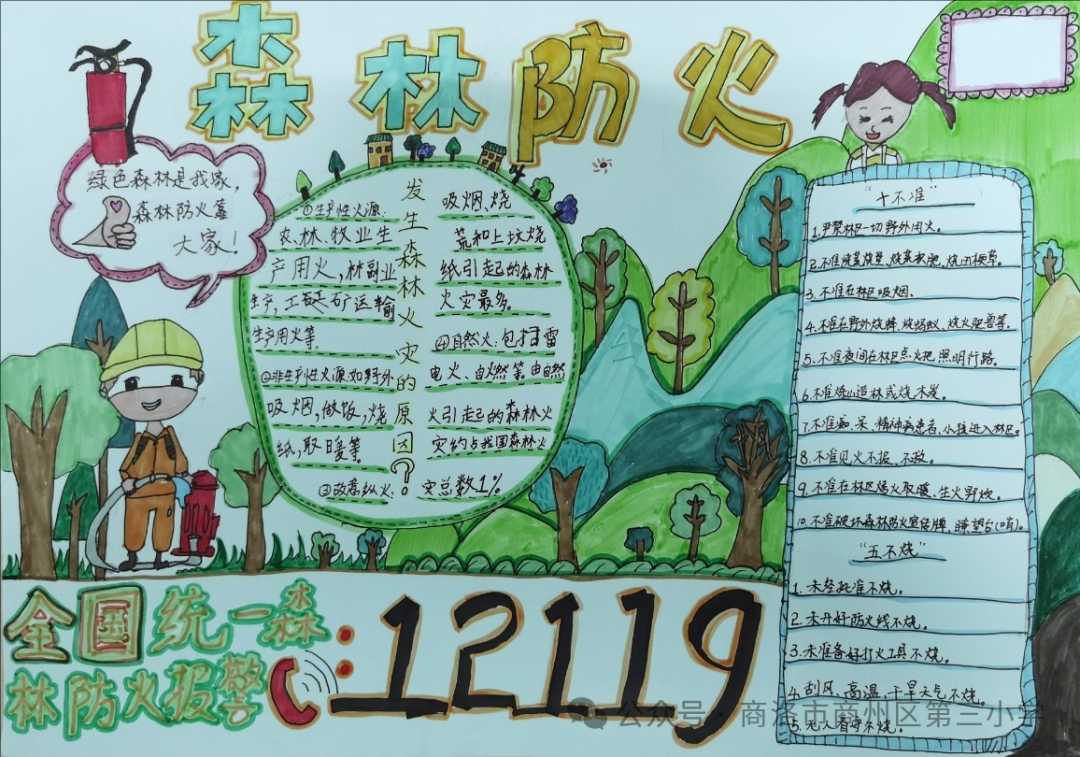 森林防火
绿色森林是我家，
森林防火靠
大家！
发生森林火灾的原因？
①生产性火源：
农、林、牧业生
产用火，林副业
生产，工矿运输
生产用火等。
②非生产性火源：如野外
吸烟，做饭，烧
纸，取暖等。
③故意纵火。
吸烟、烧
荒和上坟烧
纸引起的森林
火灾最多。
④自然火：包括雷
电火、自燃等。由自然
火引起的森林火
灾约占我国森林火
灾总数1%
“十不准”
1.严禁林区一切野外用火。
3.不准在林区吸烟。
4.不准在野外烧蜂、烧蚂蚁、烧火驱兽等。
5.不准夜间在林区点火把照明行路。
6.不准炼山造林或烧木炭。
7.不准痴、呆、精神病患者、小孩进入林区。
8.不准见火不报、不救。
9.不准在林区烤火取暖、生火野炊。
10.不准破坏森林防火宣传牌、瞭望台(哨)。
“五不烧”
1.未经批准不烧。
2.未开好防火线不烧。
3.未准备好打火工具不烧。
4.刮风、高温、干旱天气不烧。
5.无人看守不烧。
全国统一森
林防火报警
：12119
公众号·商洛市商州区第三小学